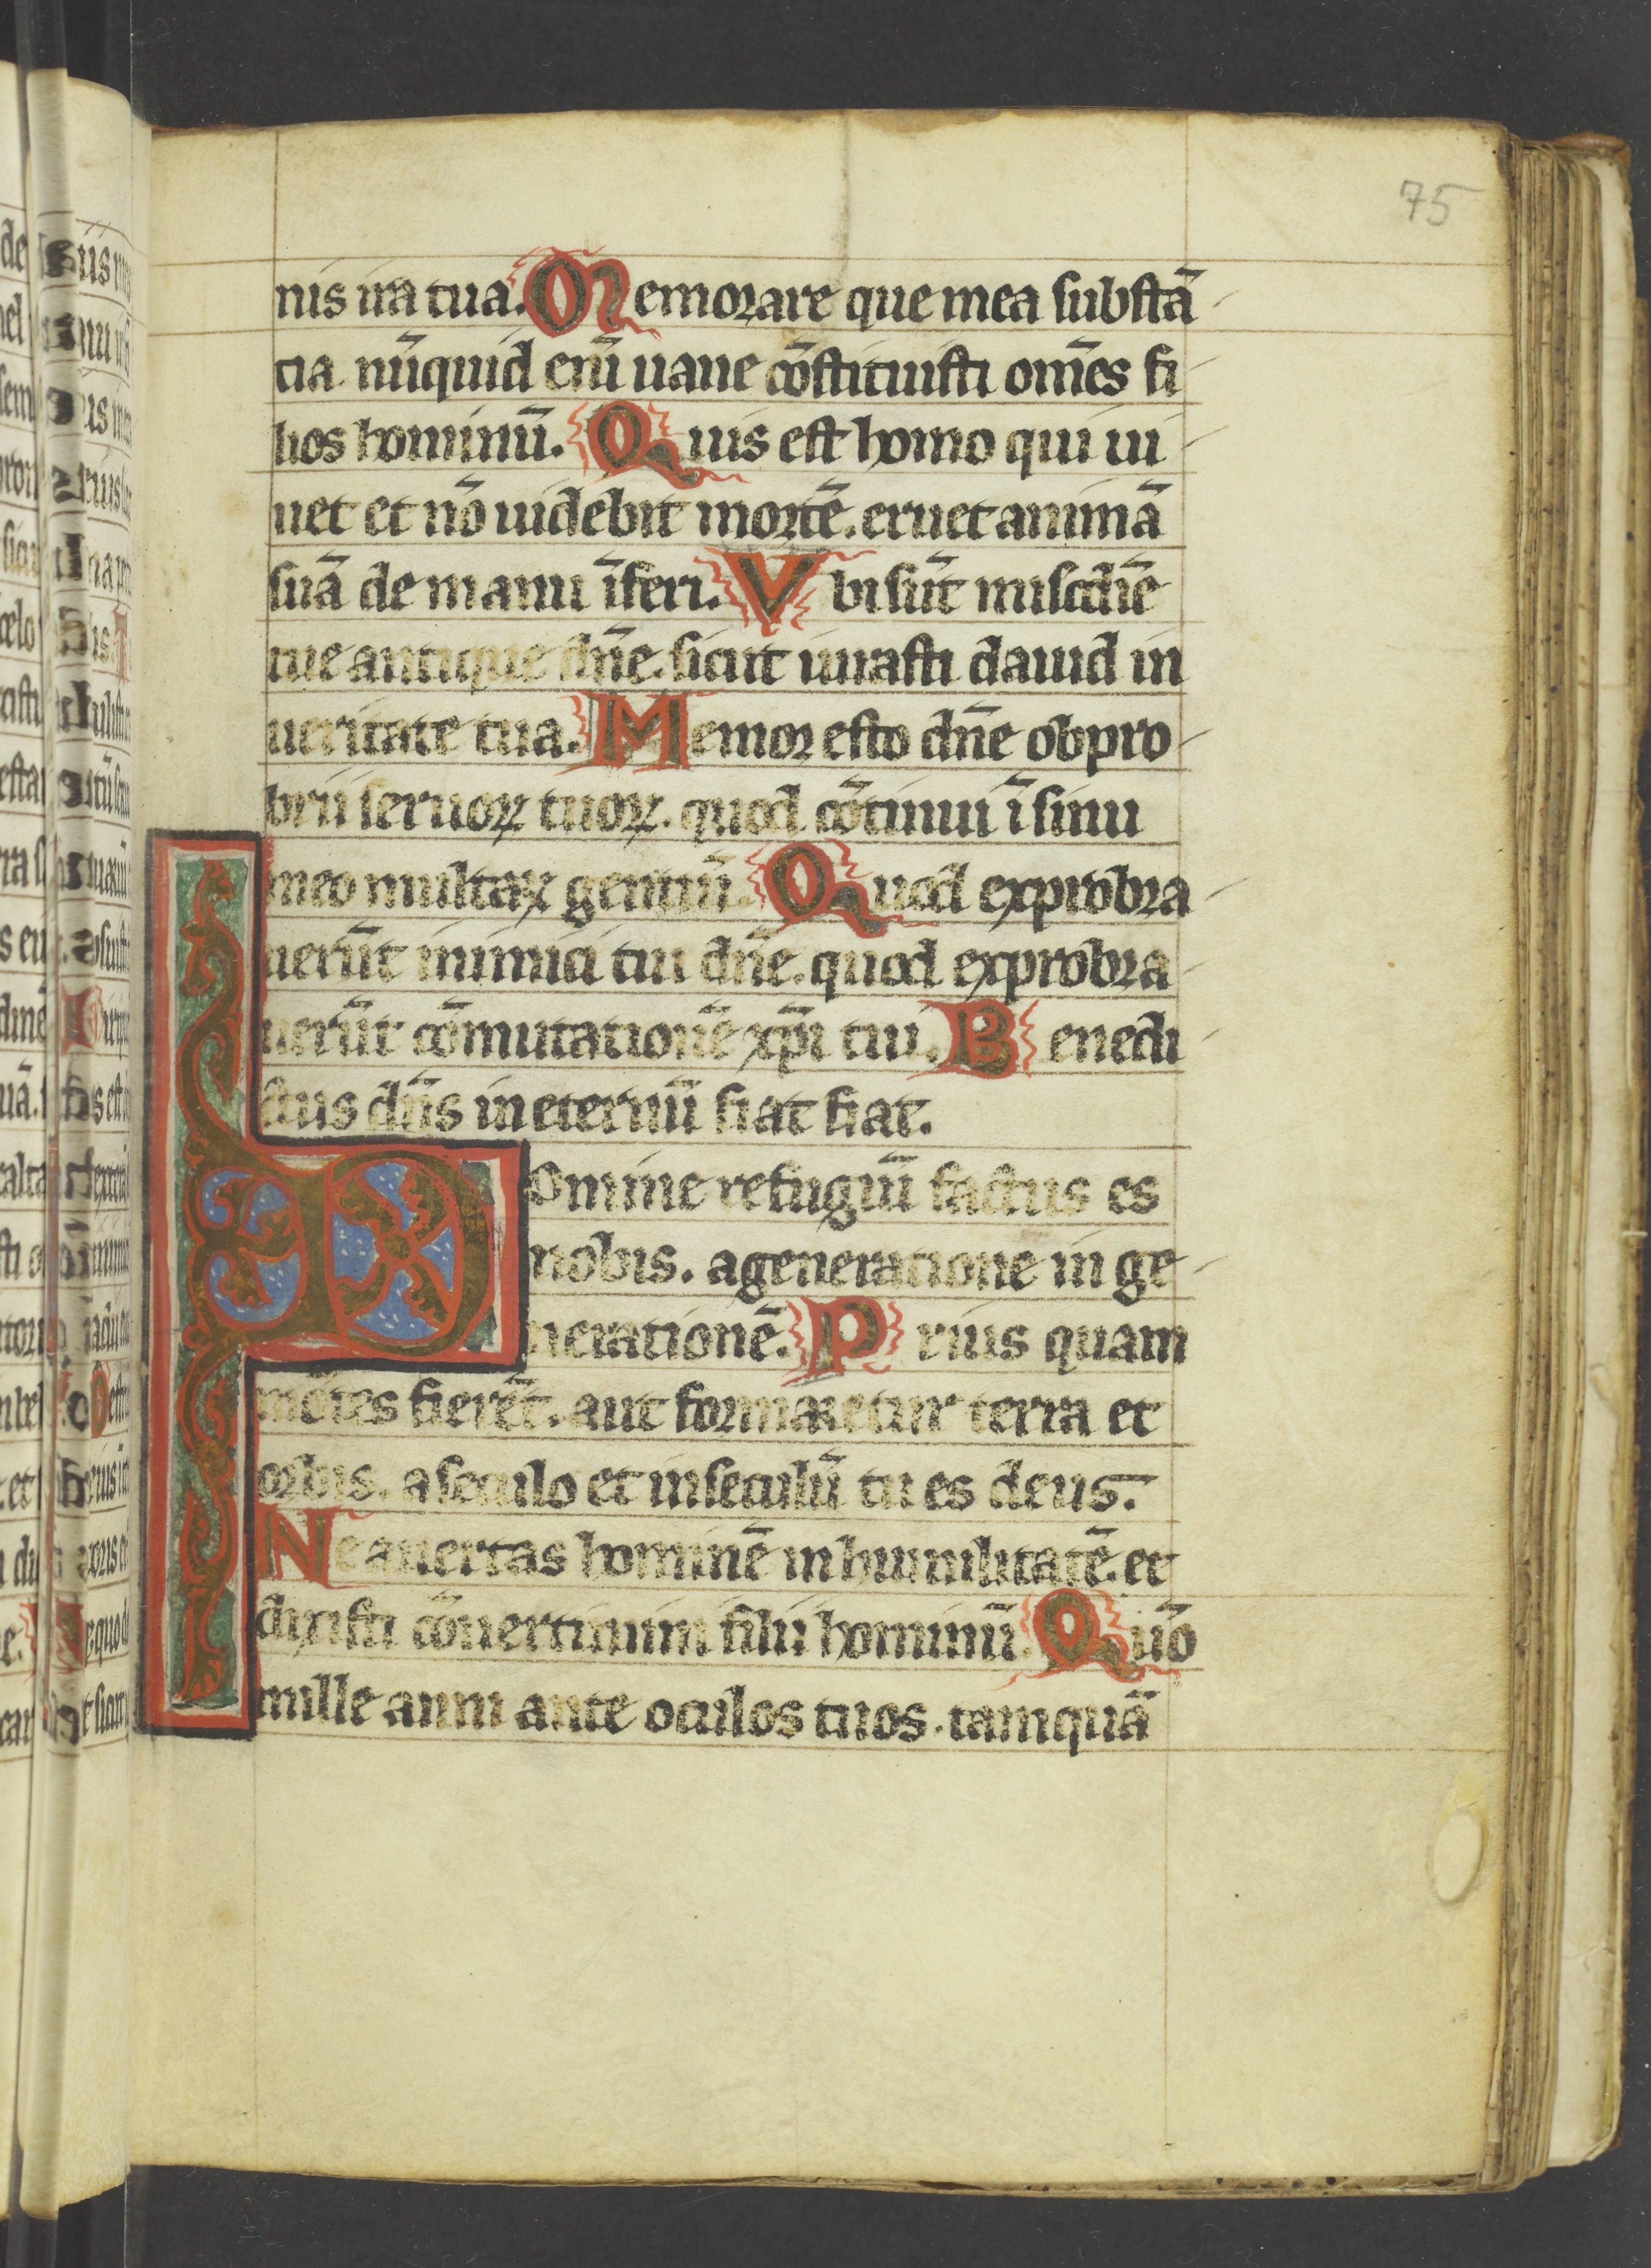 75
nis ira tua. Memorare que mea substā
tia nūquid enī uane cōstituisti om̄es fi
lios hominū. Quis est homo qui ui
uet et nō uidebit mortē. eruet animā
suā de manu īferi. Vbi sūt miscdīe
tue antique dn̄e. sicut iurasti dauid in
ueritate tua. Memor esto dn̄e obpro
brii seruoꝝ tuoꝝ. quod cōtinui ī sinu
meo multaꝝ gentiū. Quod exprobra
uerūt inimici tui dn̄e. quod exprobra
uerūt cōmutationē xp̄i tui. Benedi
ctus dn̄s in eternū fiat fiat.
Domine refugiū factus es
nobis. a generatione in ge
nerationē. Prius quam
mōtes fierēt. aut formaretur terra et
orbis. a seculo et in seculū tu es deus.
Ne auertas hominē in humilitatē. et
dixisti cōuertimini filii hominū. Quō
mille anni ante oculos tuos. tamquā